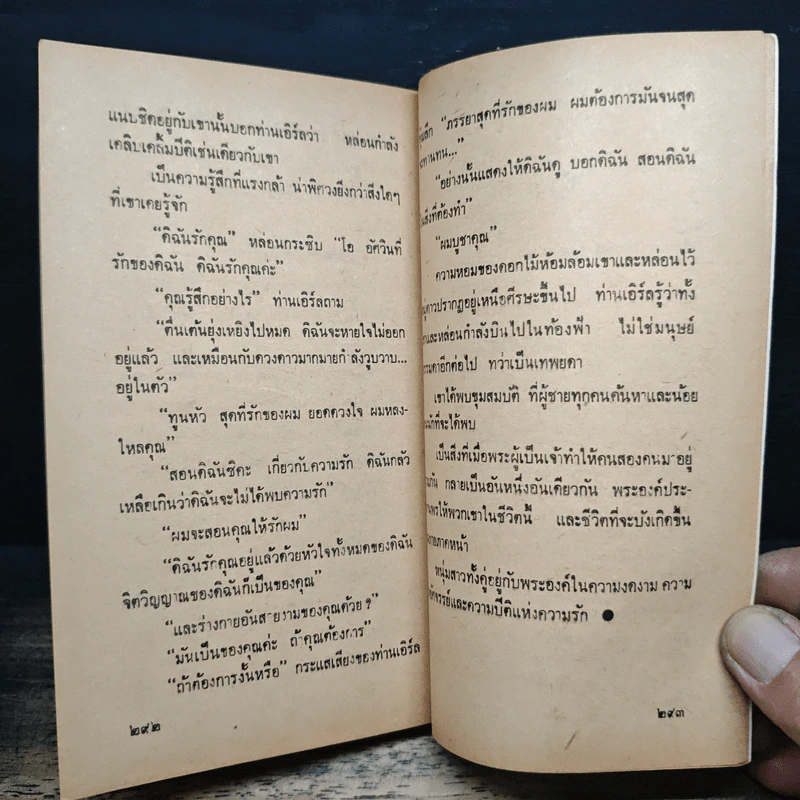 แนบชิดอยู่กับเขานั้นบอกท่านเอิร์ลว่า หล่อนกำลัง
เคลิบเคลิ้มปีติเช่นเดียวกับเขา
เป็นความรู้สึกที่แรงกล้า น่าพิศวงยิ่งกว่าสิ่งใดๆ
ที่เขาเคยรู้จัก
“ดิฉันรักคุณ” หล่อนกระซิบ “โอ อัศวินที่
รักของดิฉัน ดิฉันรักคุณค่ะ”
“คุณรู้สึกอย่างไร” ท่านเอิร์ลถาม
“ตื่นเต้นยุ่งเหยิงไปหมด ดิฉันจะหายใจไม่ออก
อยู่แล้ว และเหมือนกับดวงดาวมากมายกำลังวูบวาบ...
อยู่ในตัว”
“ทูนหัว สุดที่รักของผม ยอดดวงใจ ผมหลง-
ใหลคุณ”
“สอนดิฉันซิคะ เกี่ยวกับความรัก ดิฉันกลัว
เหลือเกินว่าดิฉันจะไม่ได้พบความรัก”
“ผมจะสอนคุณให้รักผม”
“ดิฉันรักคุณอยู่แล้วด้วยหัวใจทั้งหมดของดิฉัน
จิตวิญญาณของดิฉันก็เป็นของคุณ”
“และร่างกายอันสวยงามของคุณด้วย ?”
“มันเป็นของคุณค่ะ ถ้าคุณต้องการ”
“ถ้าต้องการงั้นหรือ” กระแสเสียงของท่านเอิร์ล
๒๙๒
“ภรรยาสุดที่รักของผม ผมต้องการมันจนสุด
จะทานทน...”
“อย่างนั้นแสดงให้ดิฉันดู บอกดิฉัน สอนดิฉัน
ในสิ่งที่ต้องทำ”
“ผมบูชาคุณ”
ความหอมของดอกไม้ห้อมล้อมเขาและหล่อนไว้
ปรากฏอยู่เหนือศีรษะขึ้นไป ท่านเอิร์ลรู้ว่าทั้ง
และหล่อนกำลังบินไปในท้องฟ้า ไม่ใช่มนุษย์
ธรรมดาอีกต่อไป ทว่าเป็นเทพยดา
เขาได้พบขุมสมบัติ ที่ผู้ชายทุกคนค้นหาและน้อย
ที่จะได้พบ
เป็นสิ่งที่เมื่อพระผู้เป็นเจ้าทำให้คนสองคนมาอยู่
กลายเป็นอันหนึ่งอันเดียวกัน พระองค์ประ-
ทานพรให้พวกเขาในชีวิตนี้ และชีวิตที่จะบังเกิดขึ้น
ภาคหน้า
หนุ่มสาวทั้งคู่อยู่กับพระองค์ในความงดงาม ความ
และความปีติแห่งความรัก ●
๒๙๓